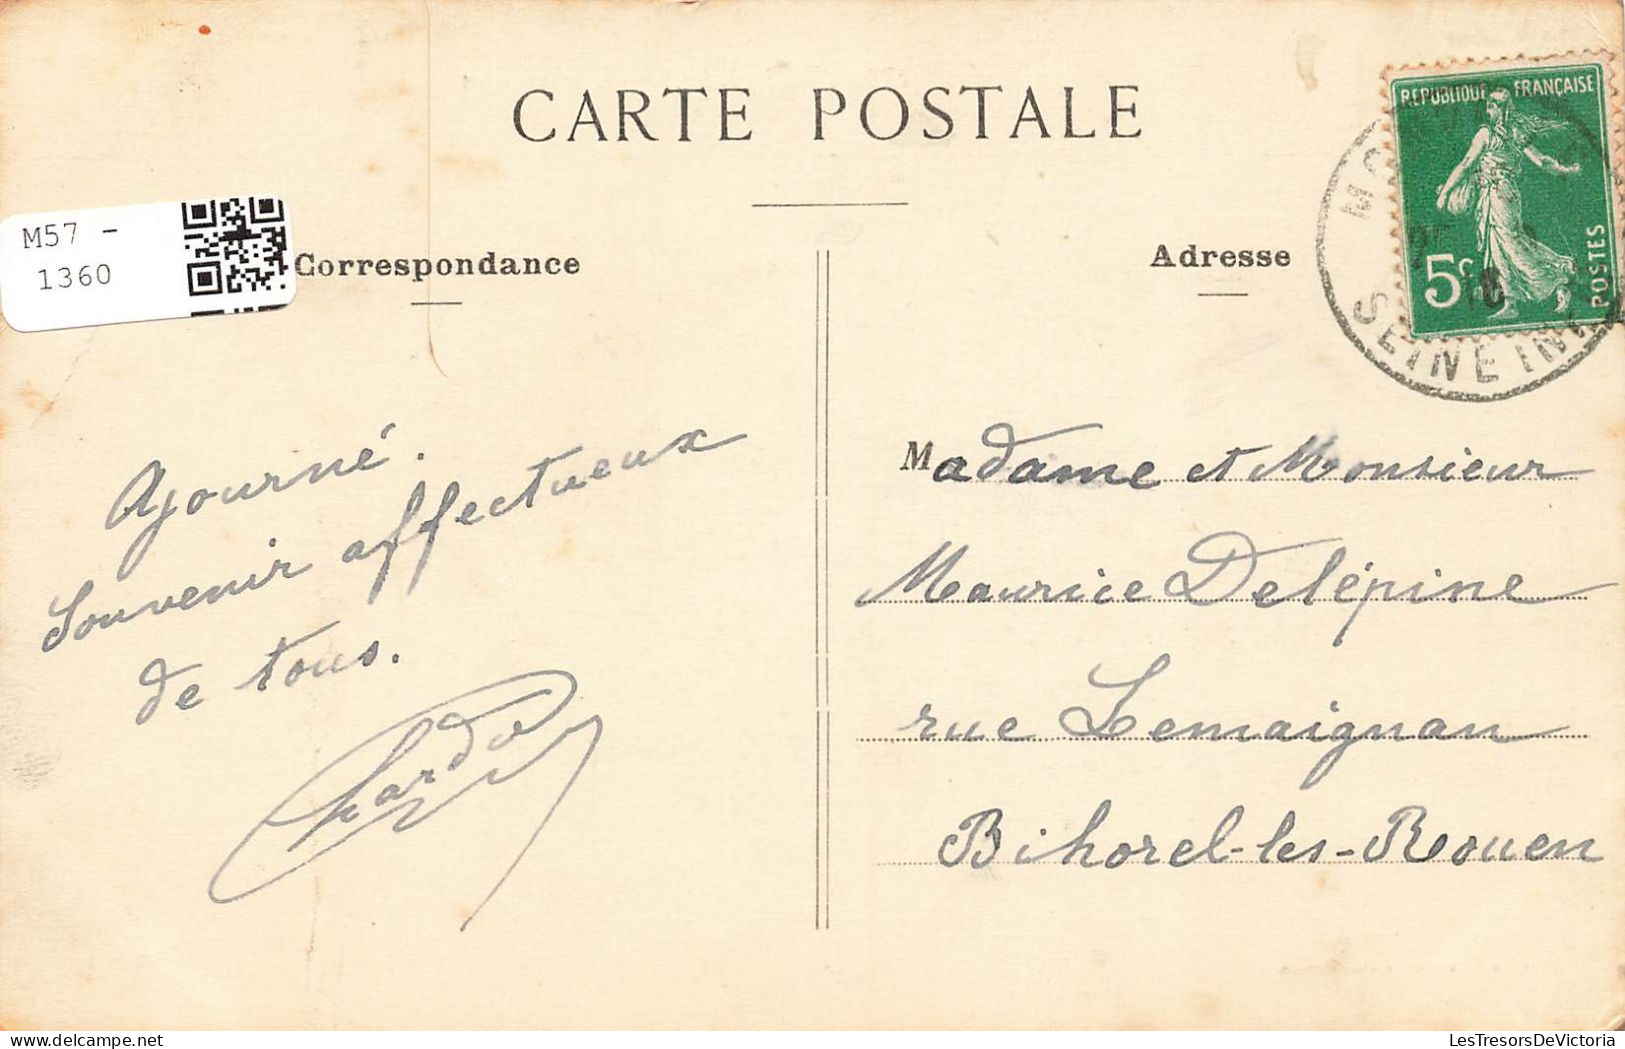 CARTE POSTALE
M57 -
1360
Correspondance
Adresse
REPUBLIQUE FRANÇAISE
5c
POSTES
SEINE INF
Ajourné.
Souvenir affectueux
de tous.
Madame et Monsieur
Maurice Delépine
rue Lemaignan
Bihorel-les-Rouen
LesTresorsDeVictoria